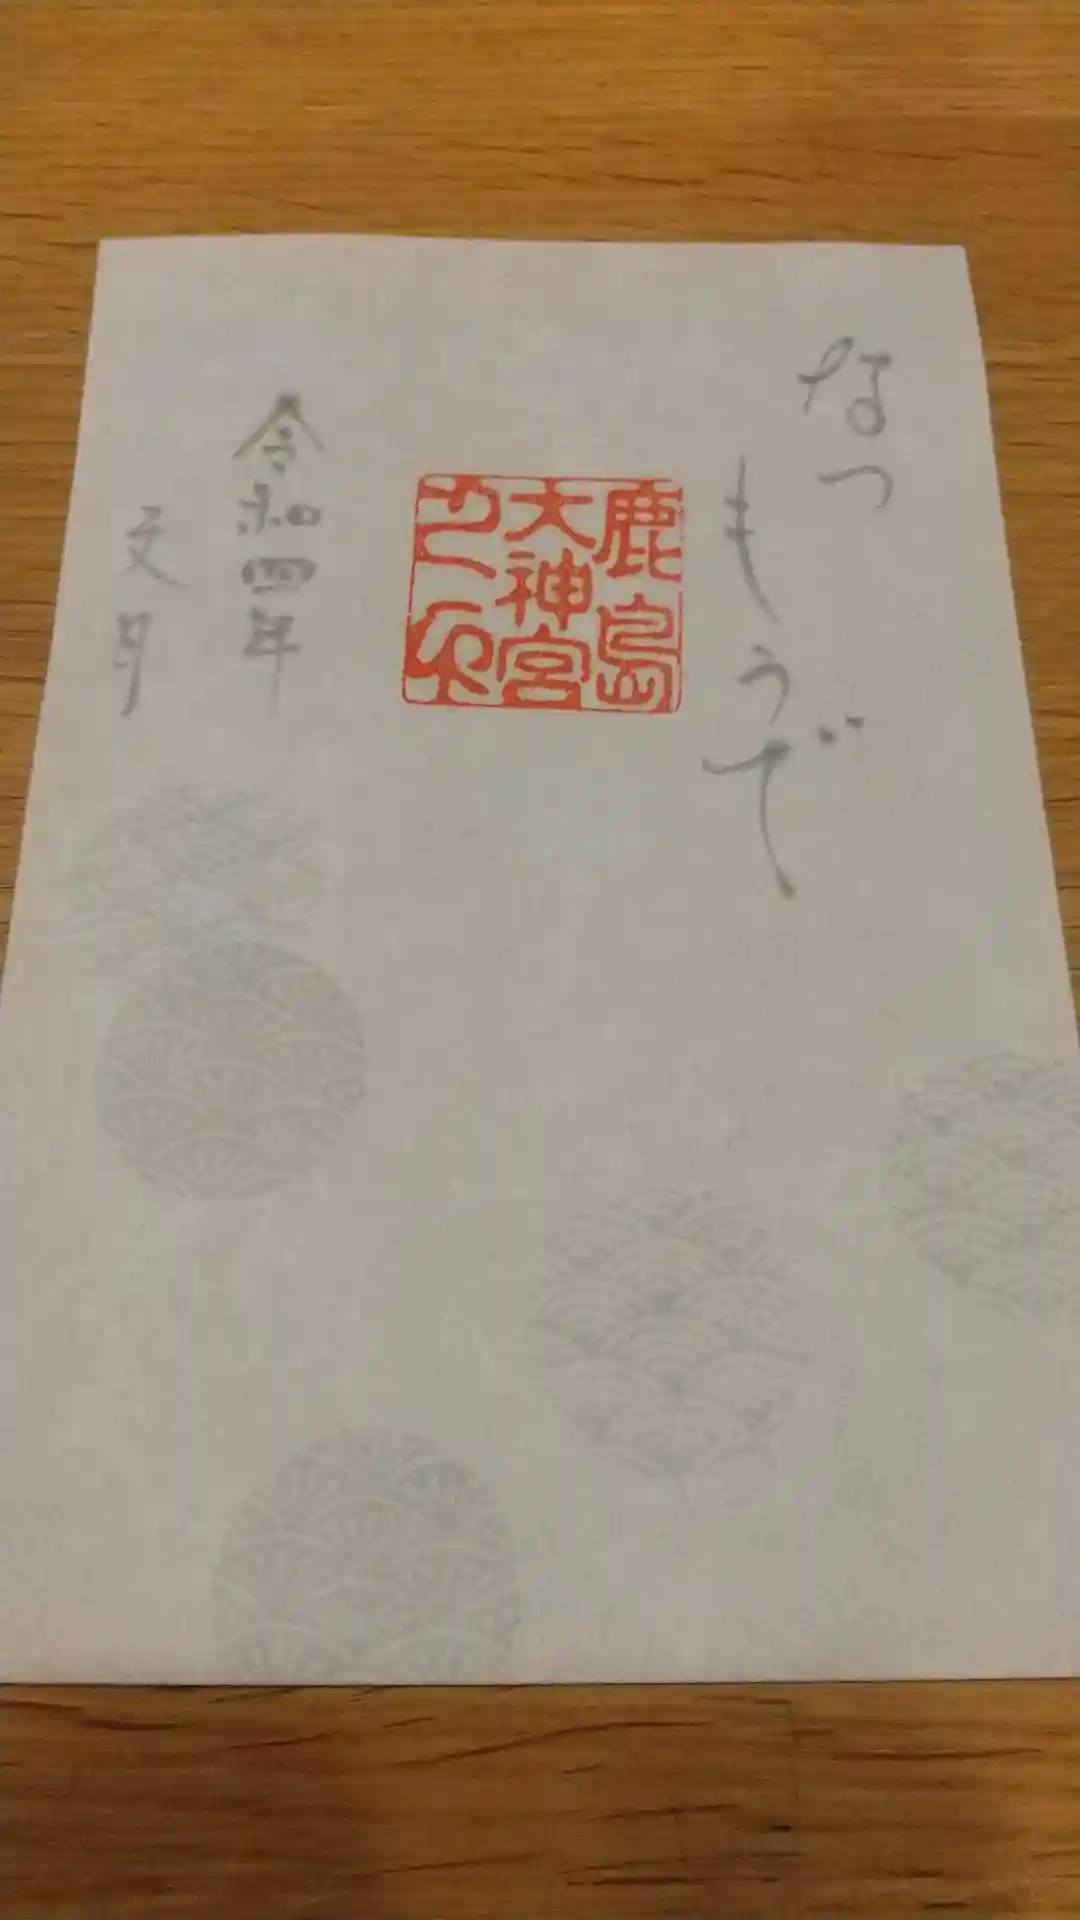 なつ
もうで
鹿島
大神宮
之印
令和四年
文月